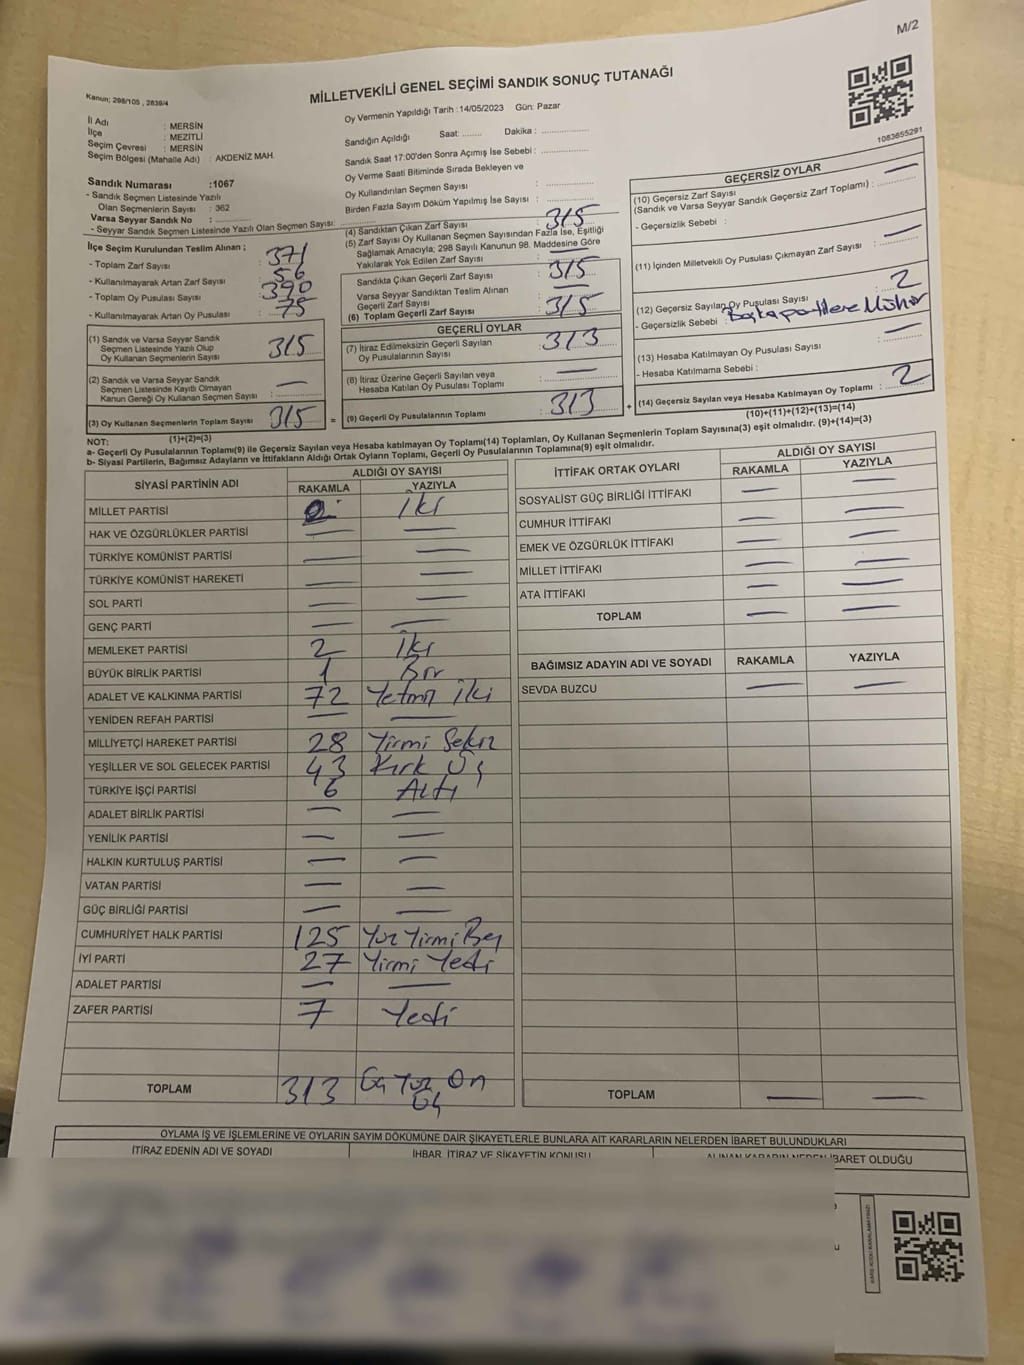 M/2
Kanun; 298/105 , 2839/4
MİLLETVEKİLİ GENEL SEÇİMİ SANDIK SONUÇ TUTANAĞI
İl Adı : MERSİN
İlçe : MEZİTLİ
Seçim Çevresi : MERSİN
Seçim Bölgesi (Mahalle Adı) : AKDENİZ MAH.
Sandık Numarası :1067
- Sandık Seçmen Listesinde Yazılı
Olan Seçmenlerin Sayısı : 362
Varsa Seyyar Sandık No :
- Seyyar Sandık Seçmen Listesinde Yazılı Olan Seçmen Sayısı:
Oy Vermenin Yapıldığı Tarih :14/05/2023 Gün: Pazar
Sandığın Açıldığı Saat: ........ Dakika : ..................
Sandık Saat 17:00'den Sonra Açımış İse Sebebi : ..................
Oy Verme Saati Bitiminde Sırada Bekleyen ve
Oy Kullandırılan Seçmen Sayısı : ..................
Birden Fazla Sayım Döküm Yapılmış İse Sayısı : ..................
1083655291
İlçe Seçim Kurulundan Teslim Alınan ;
- Toplam Zarf Sayısı : 371
- Kullanılmayarak Artan Zarf Sayısı : 56
- Toplam Oy Pusulası Sayısı : 390
- Kullanılmayarak Artan Oy Pusulası : 75
(1) Sandık ve Varsa Seyyar Sandık
Seçmen Listesinde Yazılı Olup
Oy Kullanan Seçmenlerin Sayısı : 315
(2) Sandık ve Varsa Seyyar Sandık
Seçmen Listesinde Kayıtlı Olmayan
Kanun Gereği Oy Kullanan Seçmen Sayısı : —
(3) Oy Kullanan Seçmenlerin Toplam Sayısı : 315 =
(1)+(2)=(3)
(4) Sandıktan Çıkan Zarf Sayısı : 315
(5) Zarf Sayısı Oy Kullanan Seçmen Sayısından Fazla İse, Eşitliği
Sağlamak Amacıyla; 298 Sayılı Kanunun 98. Maddesine Göre
Yakılarak Yok Edilen Zarf Sayısı : —
Sandıkta Çıkan Geçerli Zarf Sayısı : 315
Varsa Seyyar Sandıktan Teslim Alınan
Geçerli Zarf Sayısı : —
(6) Toplam Geçerli Zarf Sayısı : 315
GEÇERLİ OYLAR
(7) İtiraz Edilmeksizin Geçerli Sayılan
Oy Pusulalarının Sayısı : 313
(8) İtiraz Üzerine Geçerli Sayılan veya
Hesaba Katılan Oy Pusulası Toplamı : —
(9) Geçerli Oy Pusulalarının Toplamı : 313 +
GEÇERSİZ OYLAR
(10) Geçersiz Zarf Sayısı
(Sandık ve Varsa Seyyar Sandık Geçersiz Zarf Toplamı) : —
- Geçersizlik Sebebi :
(11) İçinden Milletvekili Oy Pusulası Çıkmayan Zarf Sayısı : —
(12) Geçersiz Sayılan Oy Pusulası Sayısı : 2
- Geçersizlik Sebebi : Başka partilere Mühür
(13) Hesaba Katılmayan Oy Pusulası Sayısı : —
- Hesaba Katılmama Sebebi :
(14) Geçersiz Sayılan veya Hesaba Katılmayan Oy Toplamı : 2
(10)+(11)+(12)+(13)=(14)
NOT:
a- Geçerli Oy Pusulalarının Toplamı(9) ile Geçersiz Sayılan veya Hesaba katılmayan Oy Toplamı(14) Toplamları, Oy Kullanan Seçmenlerin Toplam Sayısına(3) eşit olmalıdır. (9)+(14)=(3)
b- Siyasi Partilerin, Bağımsız Adayların ve İttifakların Aldığı Ortak Oyların Toplamı, Geçerli Oy Pusulalarının Toplamına(9) eşit olmalıdır.
SİYASİ PARTİNİN ADI ALDIĞI OY SAYISI
RAKAMLA YAZIYLA
MİLLET PARTİSİ 2 İki
HAK VE ÖZGÜRLÜKLER PARTİSİ — —
TÜRKİYE KOMÜNİST PARTİSİ — —
TÜRKİYE KOMÜNİST HAREKETİ — —
SOL PARTİ — —
GENÇ PARTİ — —
MEMLEKET PARTİSİ 2 İki
BÜYÜK BİRLİK PARTİSİ 1 Bir
ADALET VE KALKINMA PARTİSİ 72 Yetmiş İki
YENİDEN REFAH PARTİSİ — —
MİLLİYETÇİ HAREKET PARTİSİ 28 Yirmi Sekiz
YEŞİLLER VE SOL GELECEK PARTİSİ 43 Kırk Üç
TÜRKİYE İŞÇİ PARTİSİ 6 Altı
ADALET BİRLİK PARTİSİ — —
YENİLİK PARTİSİ — —
HALKIN KURTULUŞ PARTİSİ — —
VATAN PARTİSİ — —
GÜÇ BİRLİĞİ PARTİSİ — —
CUMHURİYET HALK PARTİSİ 125 Yüz Yirmi Beş
İYİ PARTİ 27 Yirmi Yedi
ADALET PARTİSİ — —
ZAFER PARTİSİ 7 Yedi
TOPLAM 313 Üç Yüz On Üç
İTTİFAK ORTAK OYLARI ALDIĞI OY SAYISI
RAKAMLA YAZIYLA
SOSYALİST GÜÇ BİRLİĞİ İTTİFAKI — —
CUMHUR İTTİFAKI — —
EMEK VE ÖZGÜRLÜK İTTİFAKI — —
MİLLET İTTİFAKI — —
ATA İTTİFAKI — —
TOPLAM — —
BAĞIMSIZ ADAYIN ADI VE SOYADI RAKAMLA YAZIYLA
SEVDA BUZCU — —
TOPLAM — —
OYLAMA İŞ VE İŞLEMLERİNE VE OYLARIN SAYIM DÖKÜMÜNE DAİR ŞİKAYETLERLE BUNLARA AİT KARARLARIN NELERDEN İBARET BULUNDUKLARI
İTİRAZ EDENİN ADI VE SOYADI İHBAR, İTİRAZ VE ŞİKAYETİN KONUSU ALINAN KARARIN NEDEN İBARET OLDUĞU